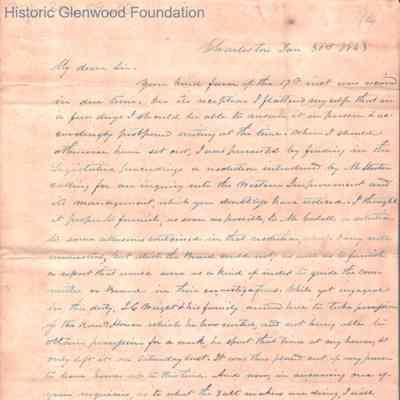 Historic Glenwood Foundation
Charleston Jan 31st 1843
My dear Sir.
Your kind favor of the 17th inst was received
in due time. On its reception I flattered myself that in
a few days I should be able to answer it in person & ac-
cordingly postponed writing at the time. When I should
otherwise have set out, I was prevented by finding in the
Legislative proceedings a resolution introduced by Mr
calling for an inquiry into the Western Improvement and
its management, which you doubtless have noticed. I thought
it proper to furnish, as soon as possible, to Mr a solution
to some allusions contained in that resolution, which I
understood, but which the Board could not, as well as to furnish
a report that would serve as a kind of index to guide the com-
mittee or Board in their investigations. While yet engaged
in this duty, & his family arrived here to take possession
of the House which he has rented, and not being able to
obtain possession for a week, he spent that time at my house, &
only left it on Saturday last. It was thus placed out of my power
to leave home up to this time. And now, in answering one of
your inquiries, as to what the Salt makers are doing, I will